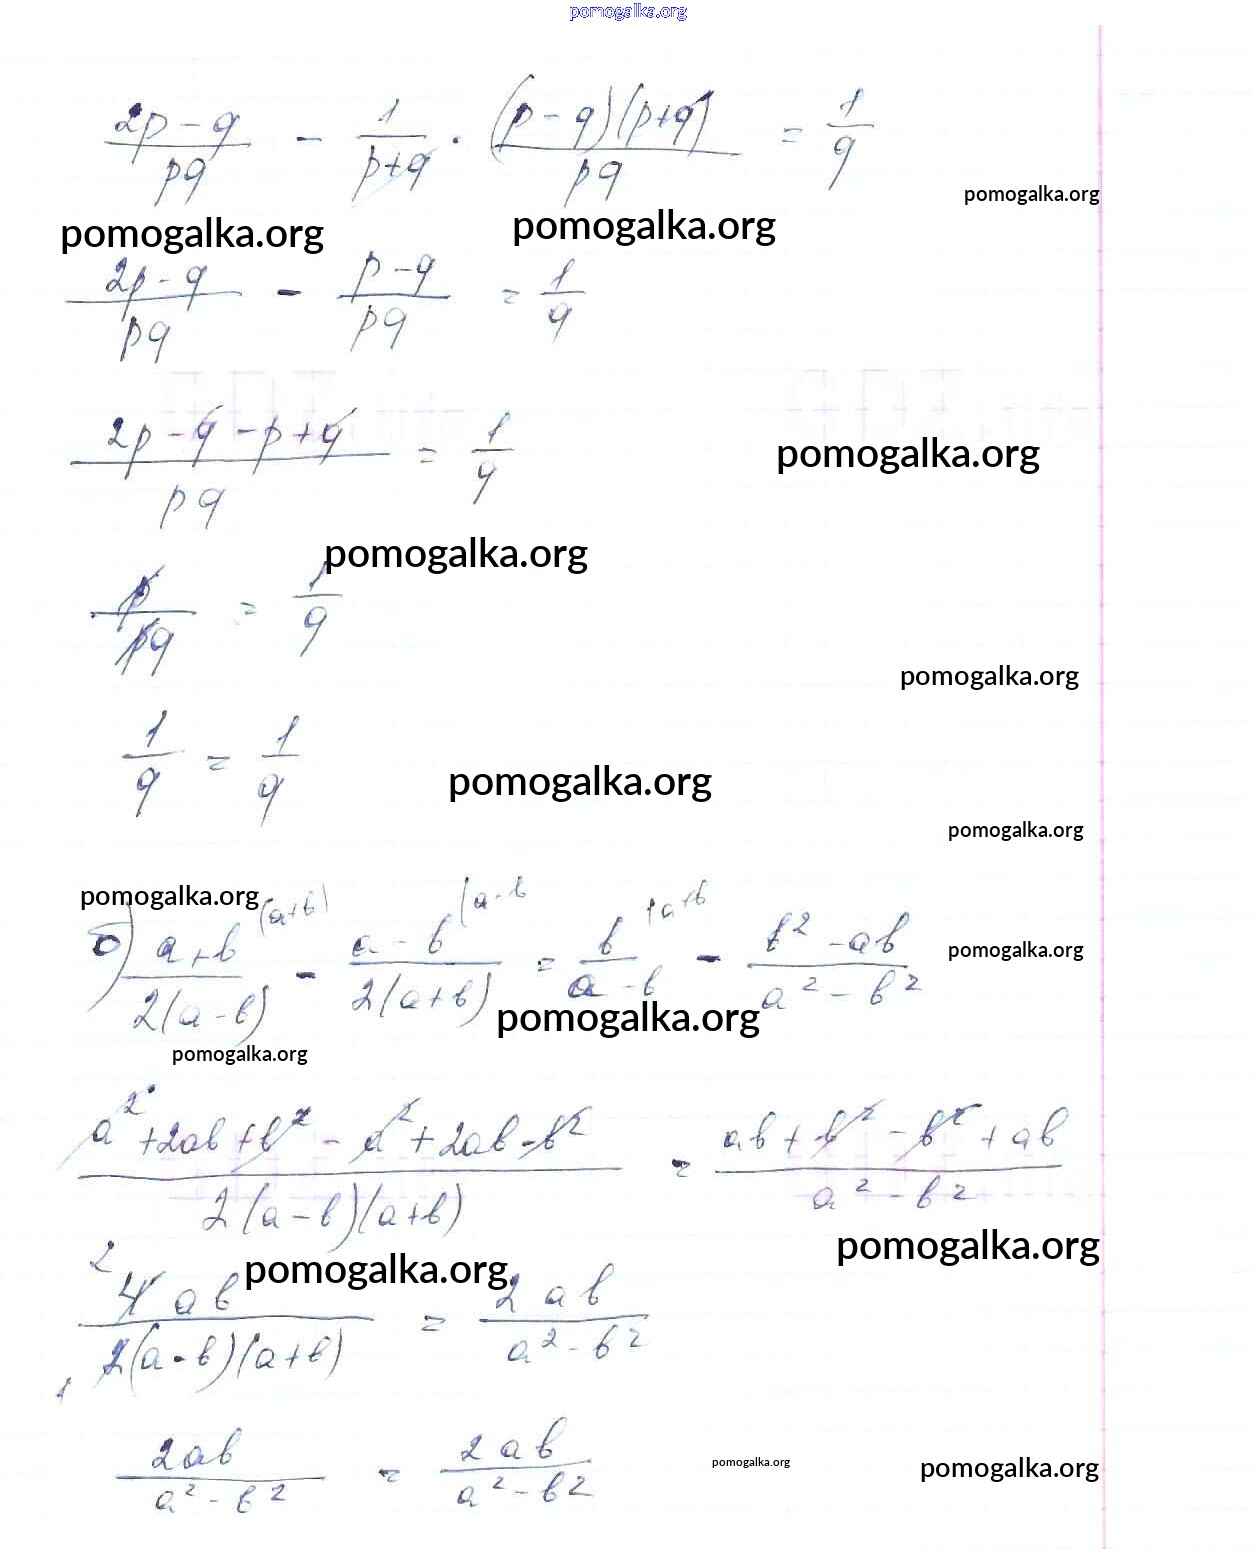 pomogalka.org
(2p - q)/(pq) - 1/(p+q) · ((p - q)(p+q))/(pq) = 1/q
pomogalka.org
pomogalka.org pomogalka.org
(2p - q)/(pq) - (p - q)/(pq) = 1/q
(2p - q - p + q)/(pq) = 1/q
pomogalka.org
pomogalka.org
p/(pq) = 1/q
pomogalka.org
1/q = 1/q
pomogalka.org
pomogalka.org
pomogalka.org
б) (a+b)/(2(a-b)) (a+b) - (a-b)/(2(a+b)) (a-b = b/(a-b) (a+b - (b² - ab)/(a² - b²)
pomogalka.org
pomogalka.org
pomogalka.org
(a² + 2ab + b² - a² + 2ab - b²)/(2(a-b)(a+b)) = (ab + b² - b² + ab)/(a² - b²)
pomogalka.org
pomogalka.org
2 4ab/(2(a-b)(a+b)) 1 = 2ab/(a² - b²)
2ab/(a² - b²) = 2ab/(a² - b²)
pomogalka.org pomogalka.org